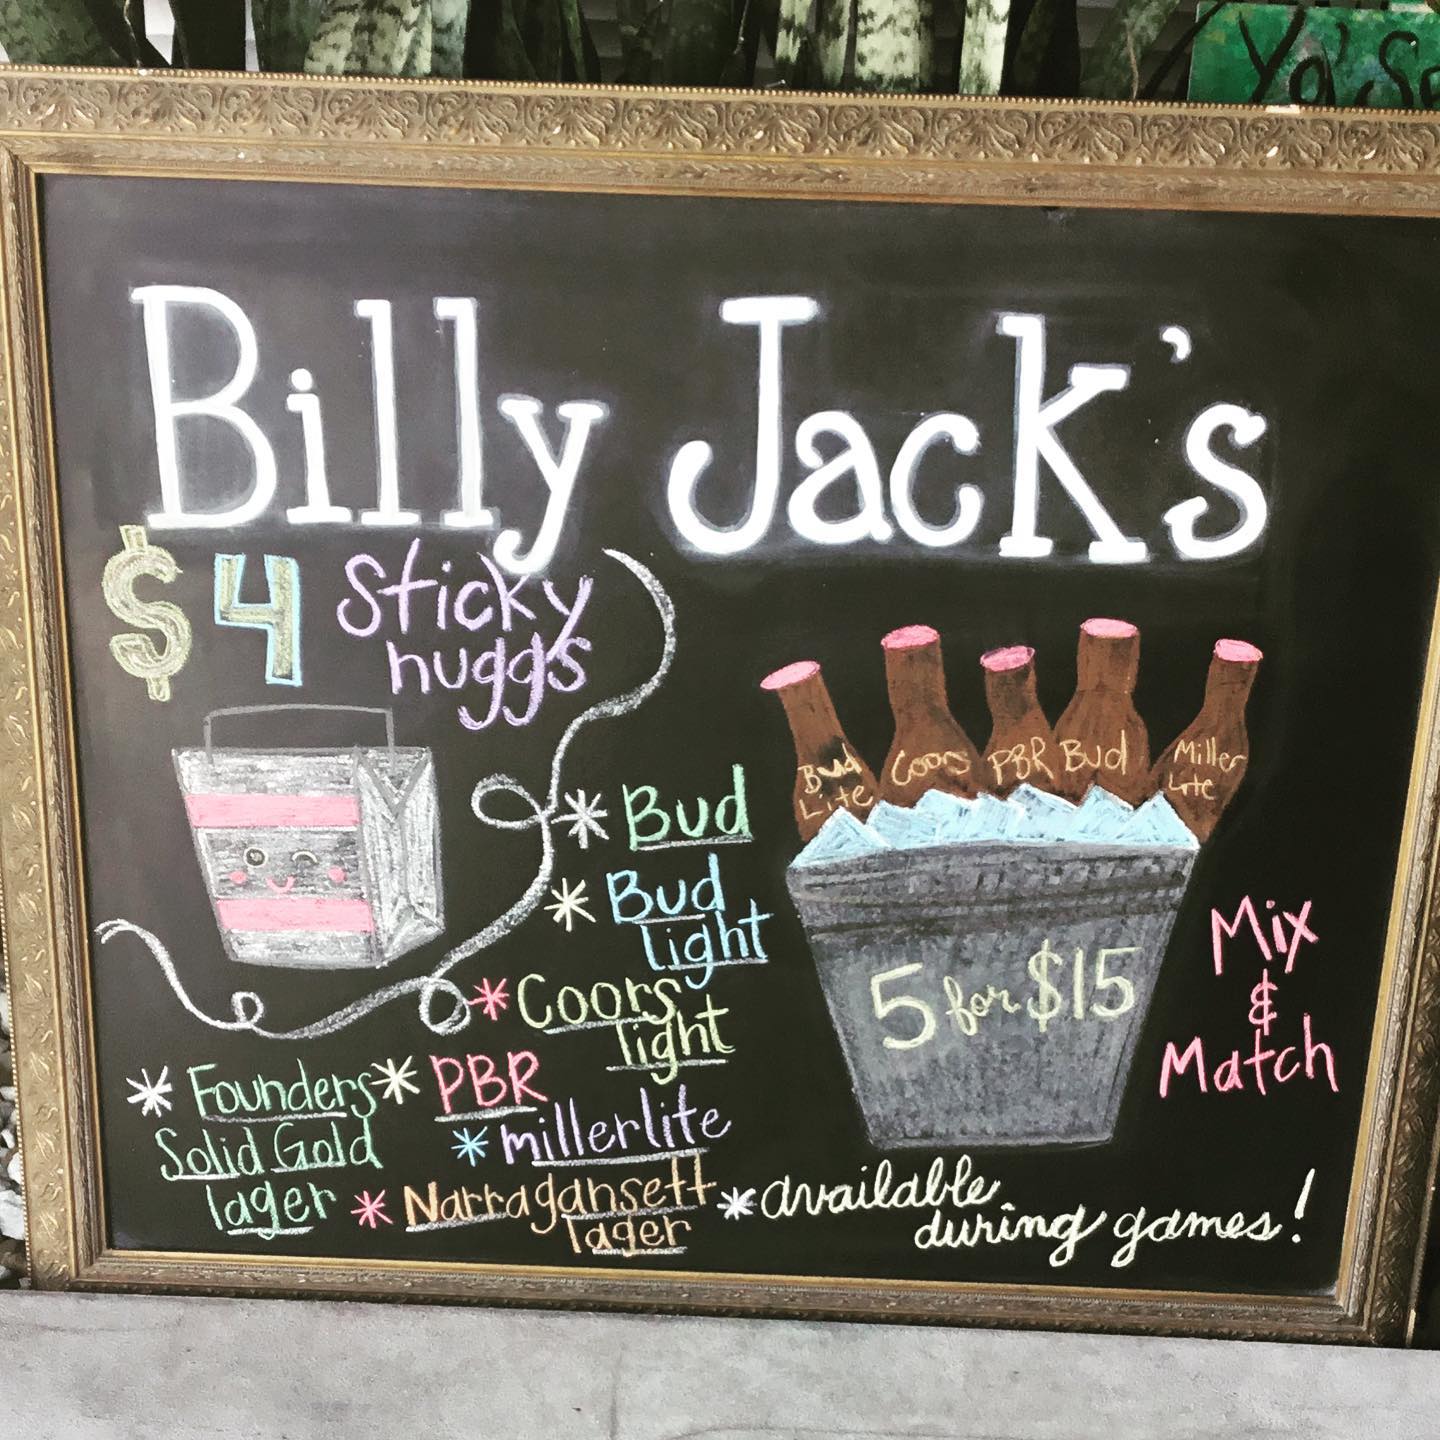 Yo' S
Billy Jack's
$4 Sticky
nuggs
Bud
Lite
Coors
PBR
Bud
Miller
Lite
* Bud
* Bud
light
* Coors
light
5 for $15
Mix
&
Match
* Founders
Solid Gold
lager
* PBR
* millerlite
* Narragansett
lager
* available
during games!